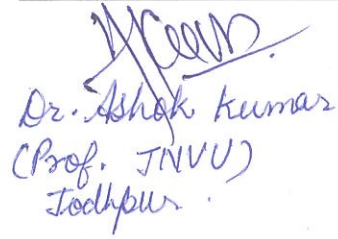 Dr. Ashok Kumar
(Prof. JNVU)
Jodhpur.